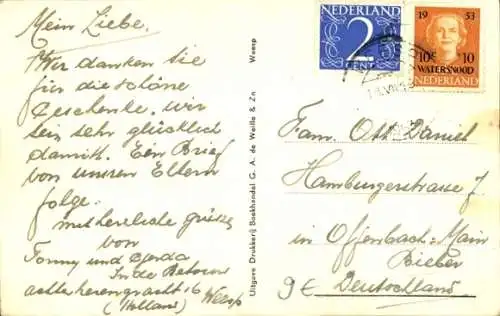 Mein Liebe.
Wir danken sie
für die schöne
Geschenke, wir
sein sehr glücklich
damitt. Ein Brief
von unseren Eltern
folge.
mit herzliche grüsse
von
Tommy und Gerda
In de Betouw
achterherengracht 16 Weesp
(Holland)
Uitgave Drukkerij Boekhandel G. A. de Weille & Zn Weesp
NEDERLAND
2
CENT
19 53
10c 10
WATERSNOOD
NEDERLAND
Fam. Ott Daniel
Hamburgerstrasse 7
in Offenbach-Main
Bieber
Deutschland